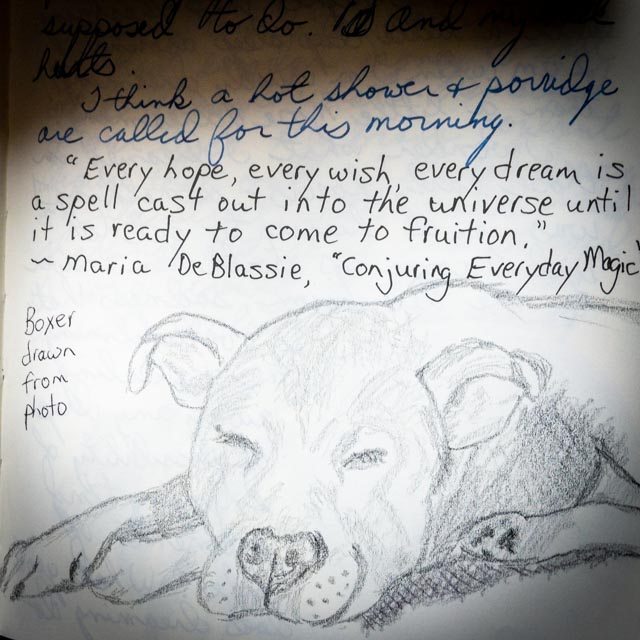 supposed to do. And my
hurts.
I think a hot shower & porridge
are called for this morning.
"Every hope, every wish, every dream is
a spell cast out into the universe until
it is ready to come to fruition."
~ Maria DeBlassie, "Conjuring Everyday Magic"
Boxer
drawn
from
photo